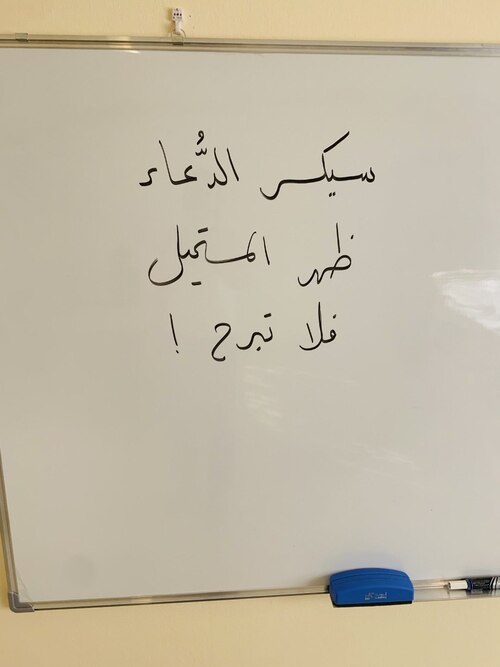 سيكسر الدُّعاء
ظهر المستحيل
فلا تبرح !